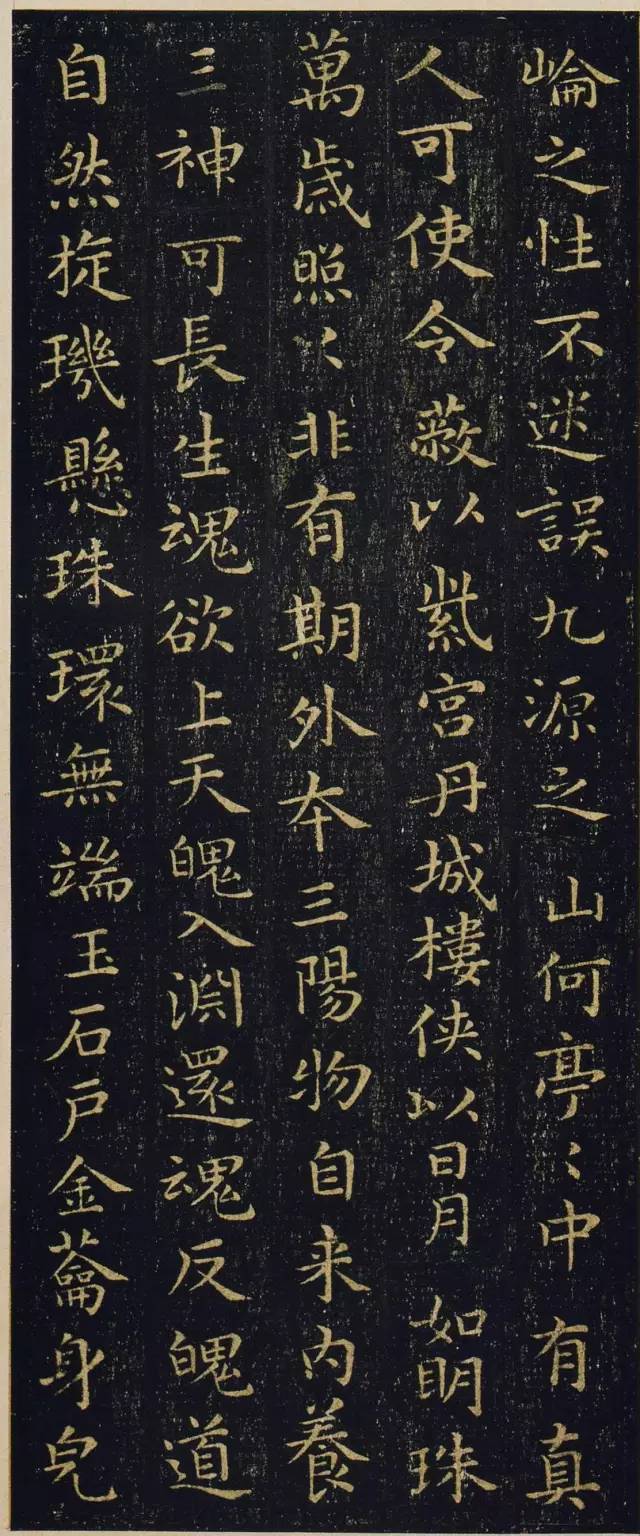 崘之性不迷誤九源之山何亭〻中有真
人可使令蔽以紫宮丹城樓侠以日月如明珠
萬歳照〻非有期外夲三陽物自来内養
三神可長生魂欲上天魄入淵還魂反魄道
自然㫌璣懸珠環無端玉石戸金蘥身皃